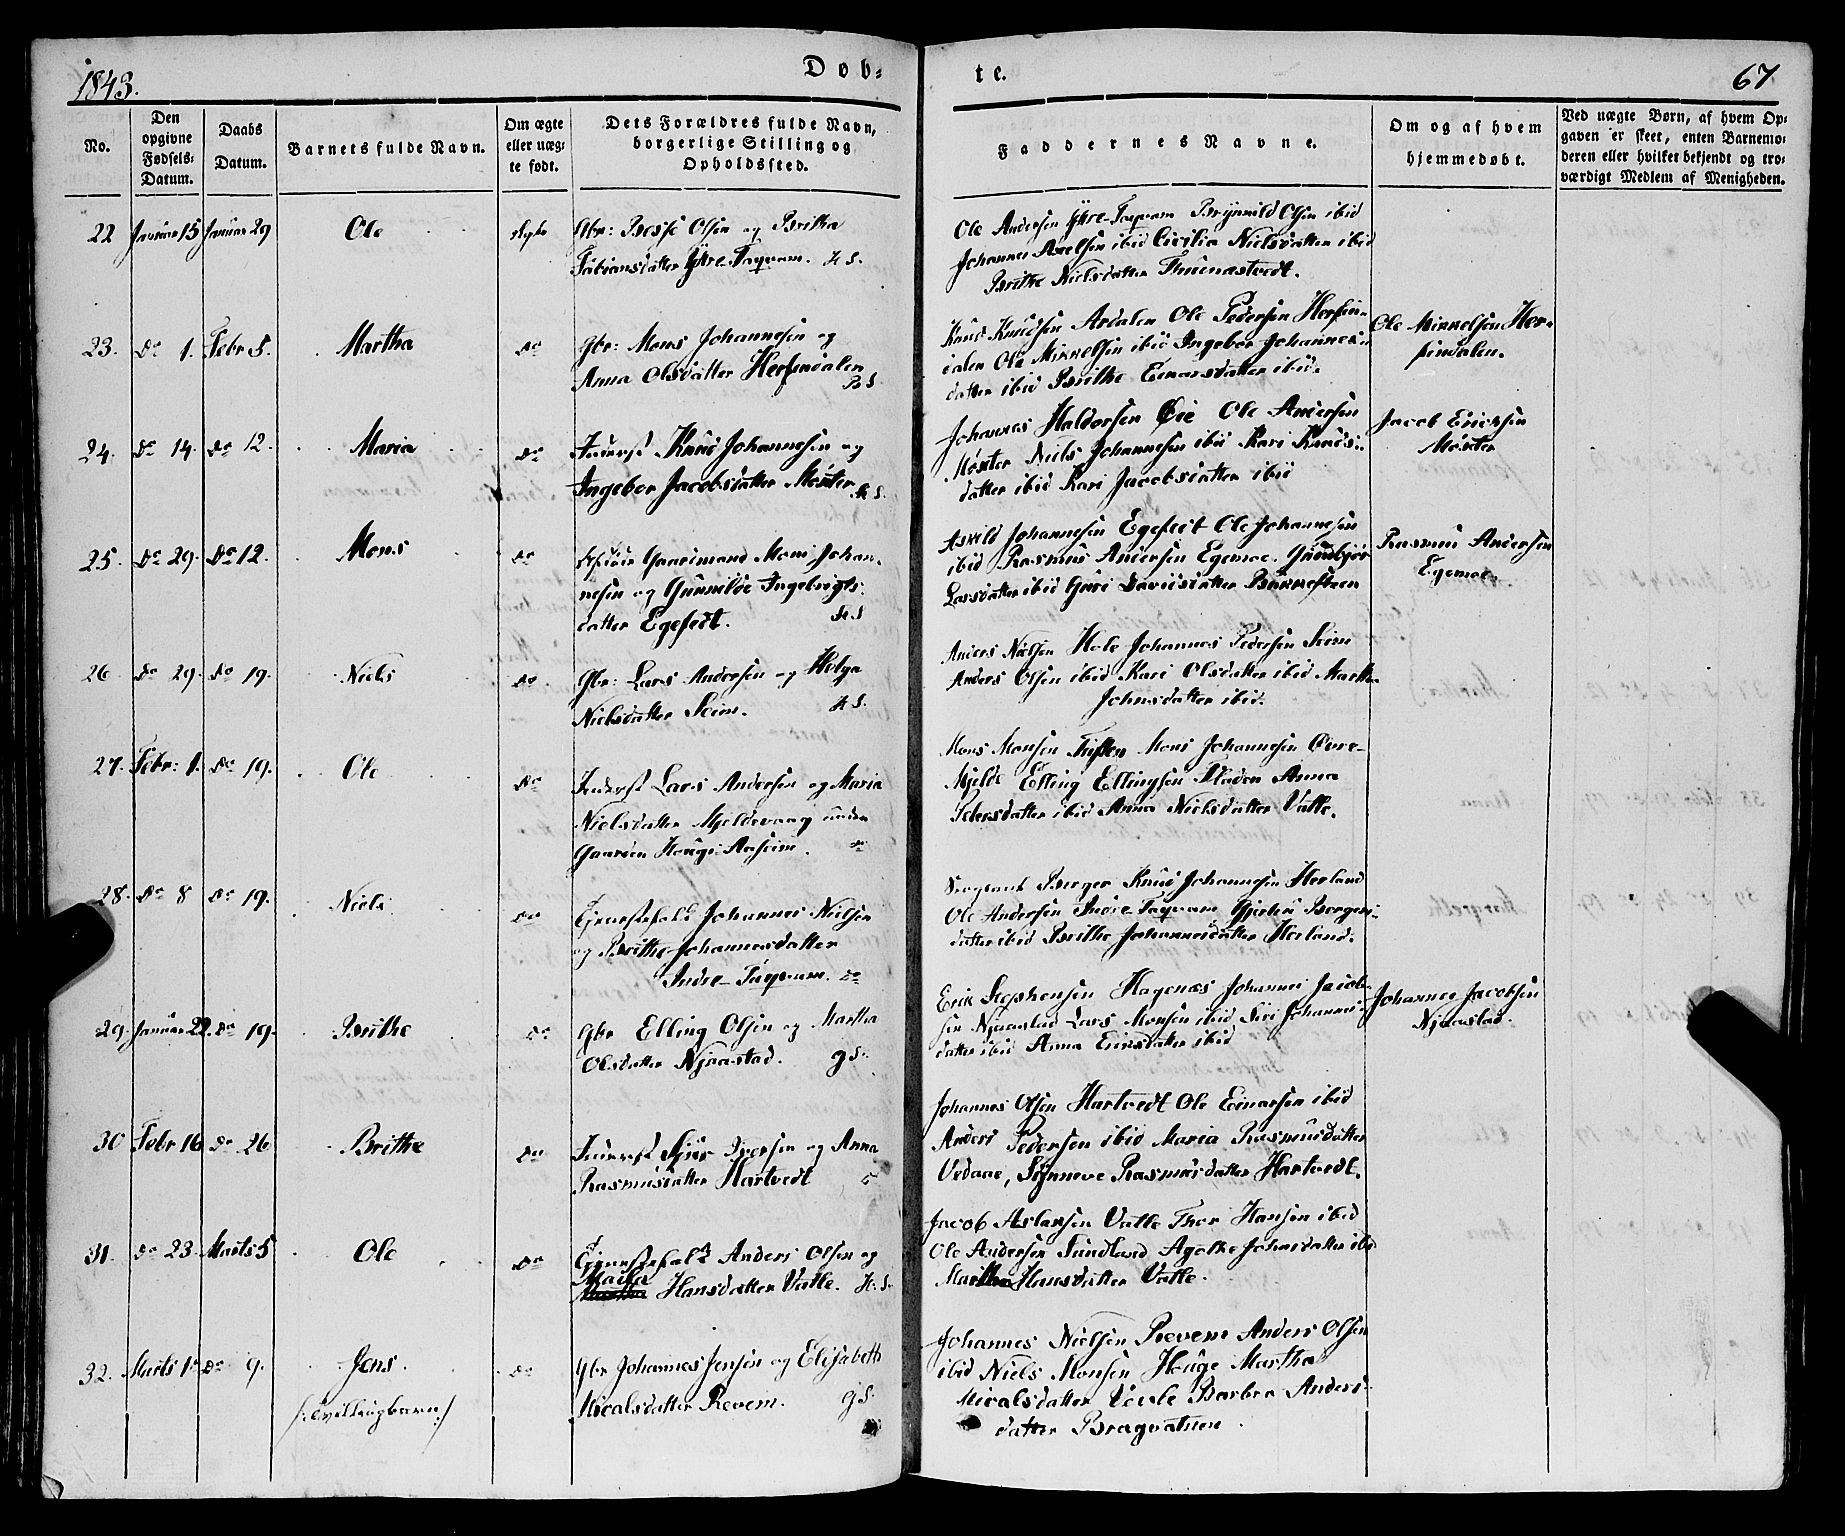 1843.
Døb-
te.
67
No.
Den opgivne Fødsels-Datum.
Daabs Datum.
Barnets fulde Navn.
Om ægte eller uægte født.
Dets Forældres fulde Navn, borgerlige Stilling og Opholdssted.
Faddernes Navne.
Om og af hvem hjemmedøbt.
Ved uægte Børn, af hvem Opgaven er skeet, enten Barnemoderen eller hvilket bekjendt og troværdigt Medlem af Menigheden.
22 Januar 15 Januar 29 Ole ægte Gbr: Olsen og Britha
Fabiansdatter Ytre-Taqvam. H S.
Ole Andersen Ytre-Taqvam Brynnild Olsen ibid
Johannes Axelsen ibid Cicilia Nielsdatter ibid
Brithe Nielsdatter
23. Do 1. Febr 5. Martha Do Gbr: Mons Johannesen og
Anna Olsdatter Herfindalen
Knud Knudsen Ardalen Ole Pedersen Herfin-
dalen Ole Mikkelsen ibid Ingebor Johannes-
datter ibid Brithe Einarsdatter ibid.
Ole Mikkelsen Her-
findalen.
24. Do 14. Do 12. Maria Do Inderst Knud Johannesen og
Ingebor Jacobsdatter Møster H S.
Johannes Haldorsen Øie Ole Andersen
Møster Niels Johannesen ibid Kari Knuds-
datter ibid Kari Jacobsdatter ibid
Jacob Ericksen
Møster
25. Do 29. Do 12. Mons Do Gaardmand Mons Johan-
nesen og Gunnilde Ingebrigts-
datter Egefedt. H S
Johannesen Egefedt Ole Johannesen
ibid Rasmus Andersen Egemoe.
Larsdatter ibid Guri Davidsdatter
Rasmus Andersen
Egemoe.
26 Do 29. Do 19. Niels Do Gbr: Lars Andersen og Helga
Nielsdatter Seim. H S.
Anders Nielsen Hole Johannes Pedersen Seim
Anders Olsen ibid Kari Olsdatter ibid Martha
Johnsdatter ibid.
27. Febr: 1. Do 19. Ole Do Inderst Lars Andersen og Maria
Nielsdatter Mjeldevaag under
Gaarden Houge-Aaseim. Do
Mons Monsen Mons Johannesen Øvre-
Mjelde Elling Ellingsen Anna
Pedersdatter ibid Anna Nielsdatter Valle.
28. Do 8 Do 19. Niels Do Johannes Nielsen
og Brithe Johannesdatter
Indre-Taqvam. Do
Berger Knud Johannesen Herland
Ole Andersen Indre-Taqvam Bergers-
datter ibid Brithe Johannesdatter Herland.
29. Januar 22. Do 19. Brithe Do Gbr Elling Olsen og Martha
Olsdatter Njaastad. g S.
Erik Stephensen Hagenæs Johannes Jacob-
sen Njaastad Lars Monsen ibid Siri Johannes-
datter ibid Anna Ericksdatter ibid
Johannes Jacobsen
Njaastad.
30 Febr 16 Do 26 Brithe Do Inderst Sjur Iversen og Anna
Rasmusdatter Hartvedt
Johannes Olsen Hartvedt Ole Einarsen ibid
Anders Pedersen ibid Maria Rasmusdatter
Vedaae, Synneve Rasmusdatter Hartvedt.
31. Do 23. Marts 5 Ole Do Anders Olsen og
Hansdatter Valle. H. S.
Jacob Aslaksen Valle Thor Hansen ibid
Ole Andersen Sundland Agathe Johnsdatter ibid
Martha Hansdatter Valle.
32. Marts 1 Do 9. Jens. Do Gbr Johannes Jensen og Elisabeth
/: Tvillingbarn :/
Micalsdatter Revem. g S.
Johannes Nielsen Revem Anders Olsen
ibid Niels Monsen Houge Martha
Micalsdatter Vevle Barbra Anders-
datter Bragvatnen.